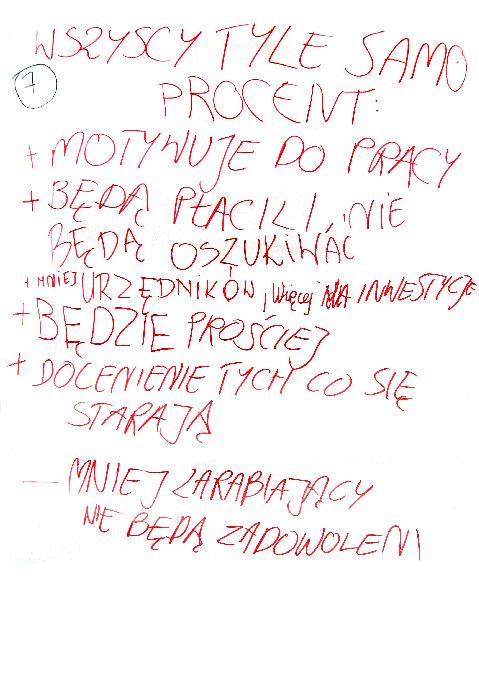 WSZYSCY TYLE SAMO
7
PROCENT:
+ MOTYWUJE DO PRACY
+ BĘDĄ PŁACILI, NIE
BĘDĄ OSZUKIWAĆ
+ MNIEJ URZĘDNIKÓW, więcej NA INWESTYCJE
+ BĘDZIE PROŚCIEJ
+ DOCENIENIE TYCH CO SIĘ
STARAJĄ
— MNIEJ ZARABIAJĄCY
NIE BĘDĄ ZADOWOLENI